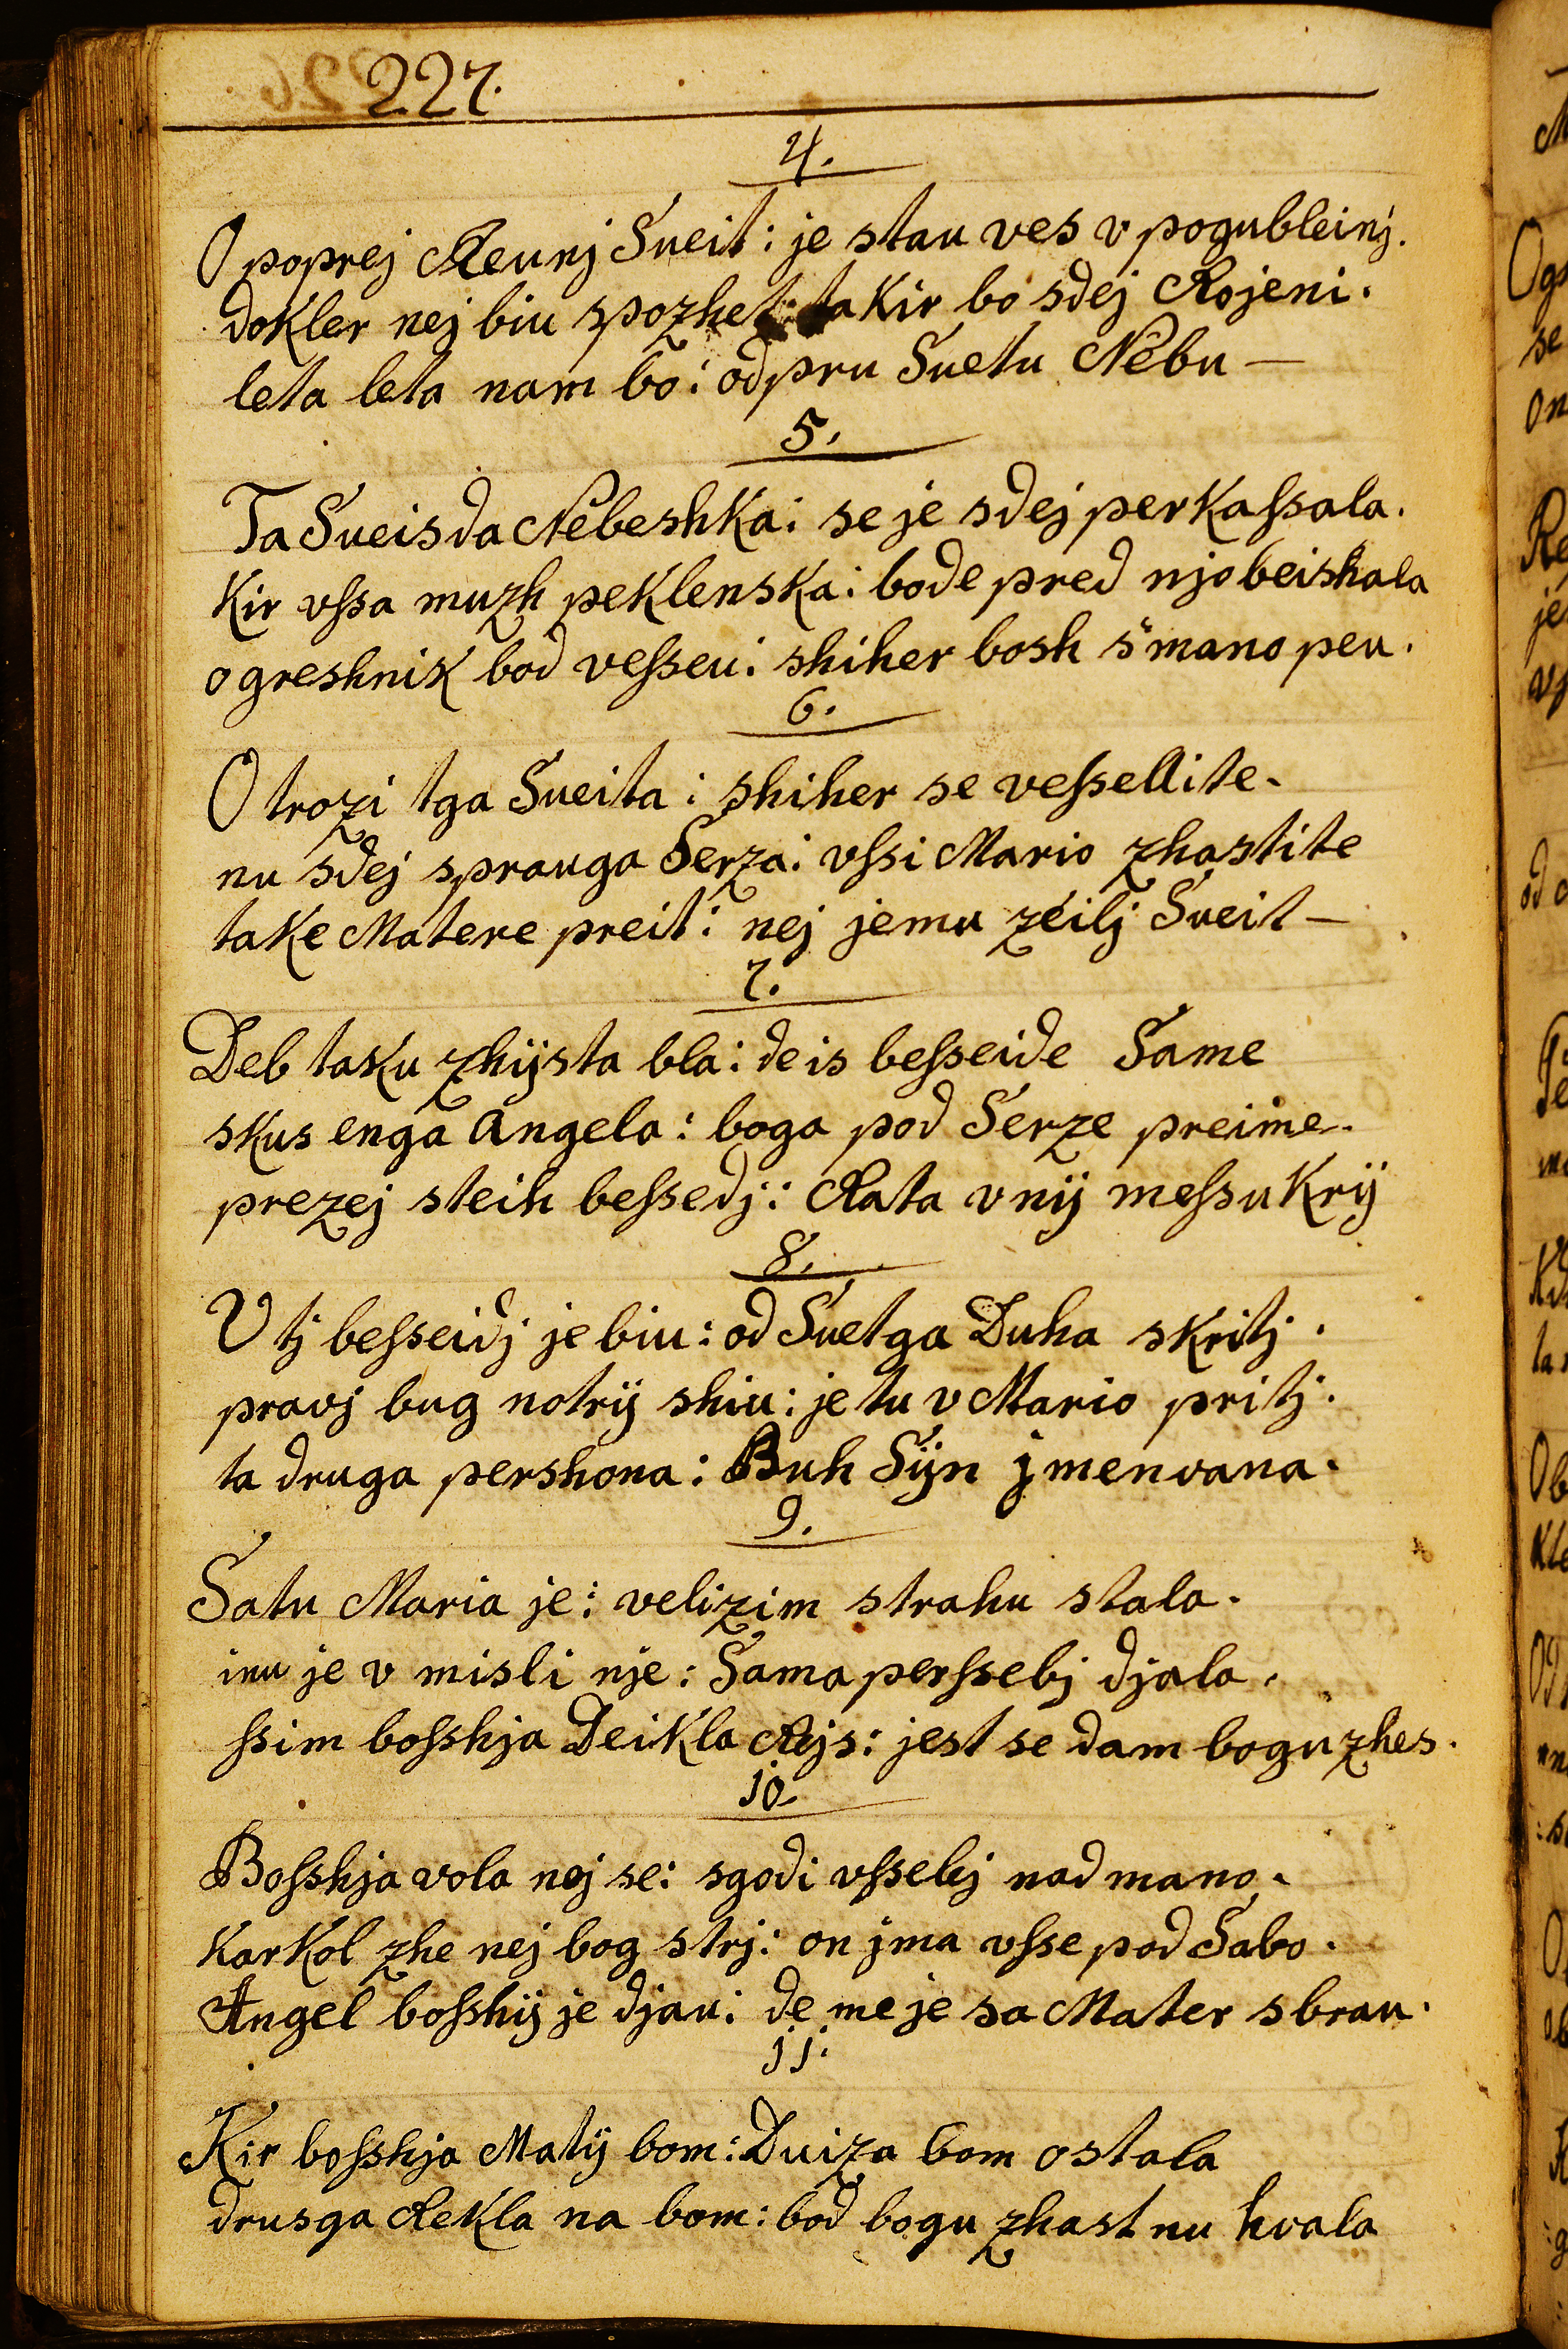 227.
4.
O poprej Reunj Sueit: je stau ves v pogubleinj.
dokler nej biu spozhet: ta Kir bo sdej Rojeni.
leta leta nam bo: odpru Suetu Nebu –
5.
Ta Sueisda Nebeshka: se je sdej perkaſsala.
Kir vſsa muzh peklenska: bode pred njo beishala
o greshnik bod veſseu: shiher bosh s'mano peu.
6.
O trozi tga Sueita: shiher se veſsellite.
nu sdej sprauga Serza: vſsi Mario zhastite
take Matere preit: nej jemu zeilj Sueit –
7.
Deb taku zhijsta bla: de is beſseide Same
skus enga Angela: boga pod Serze preime.
prezej steih beſsedj: Rata v nij meſsu Krij
8.
V tj beſseidj je biu: od Suetga Duha skritj.
pravj bug notrij shiu: je tu v Mario pritj.
ta druga pershona: Buh Sijn jmenvana.
9.
Satu Maria je: velizim strahu stala.
inu je v misli nje: Sama perſsebj djala.
ſsim boſshja Deikla Rijs: jest se dam bogu zhes.
10.
Boſshja vola nej se: sgodi vſselej nad mano.
Karkol zhe nej bog strj: on jma vſse pod Sabo.
Angel boſshij je djau: de me je sa Mater sbrau.
11.
Kir boſshja Matij bom: Duiza bom ostala
drusga Rekla na bom: bod bogu zhast nu hvala